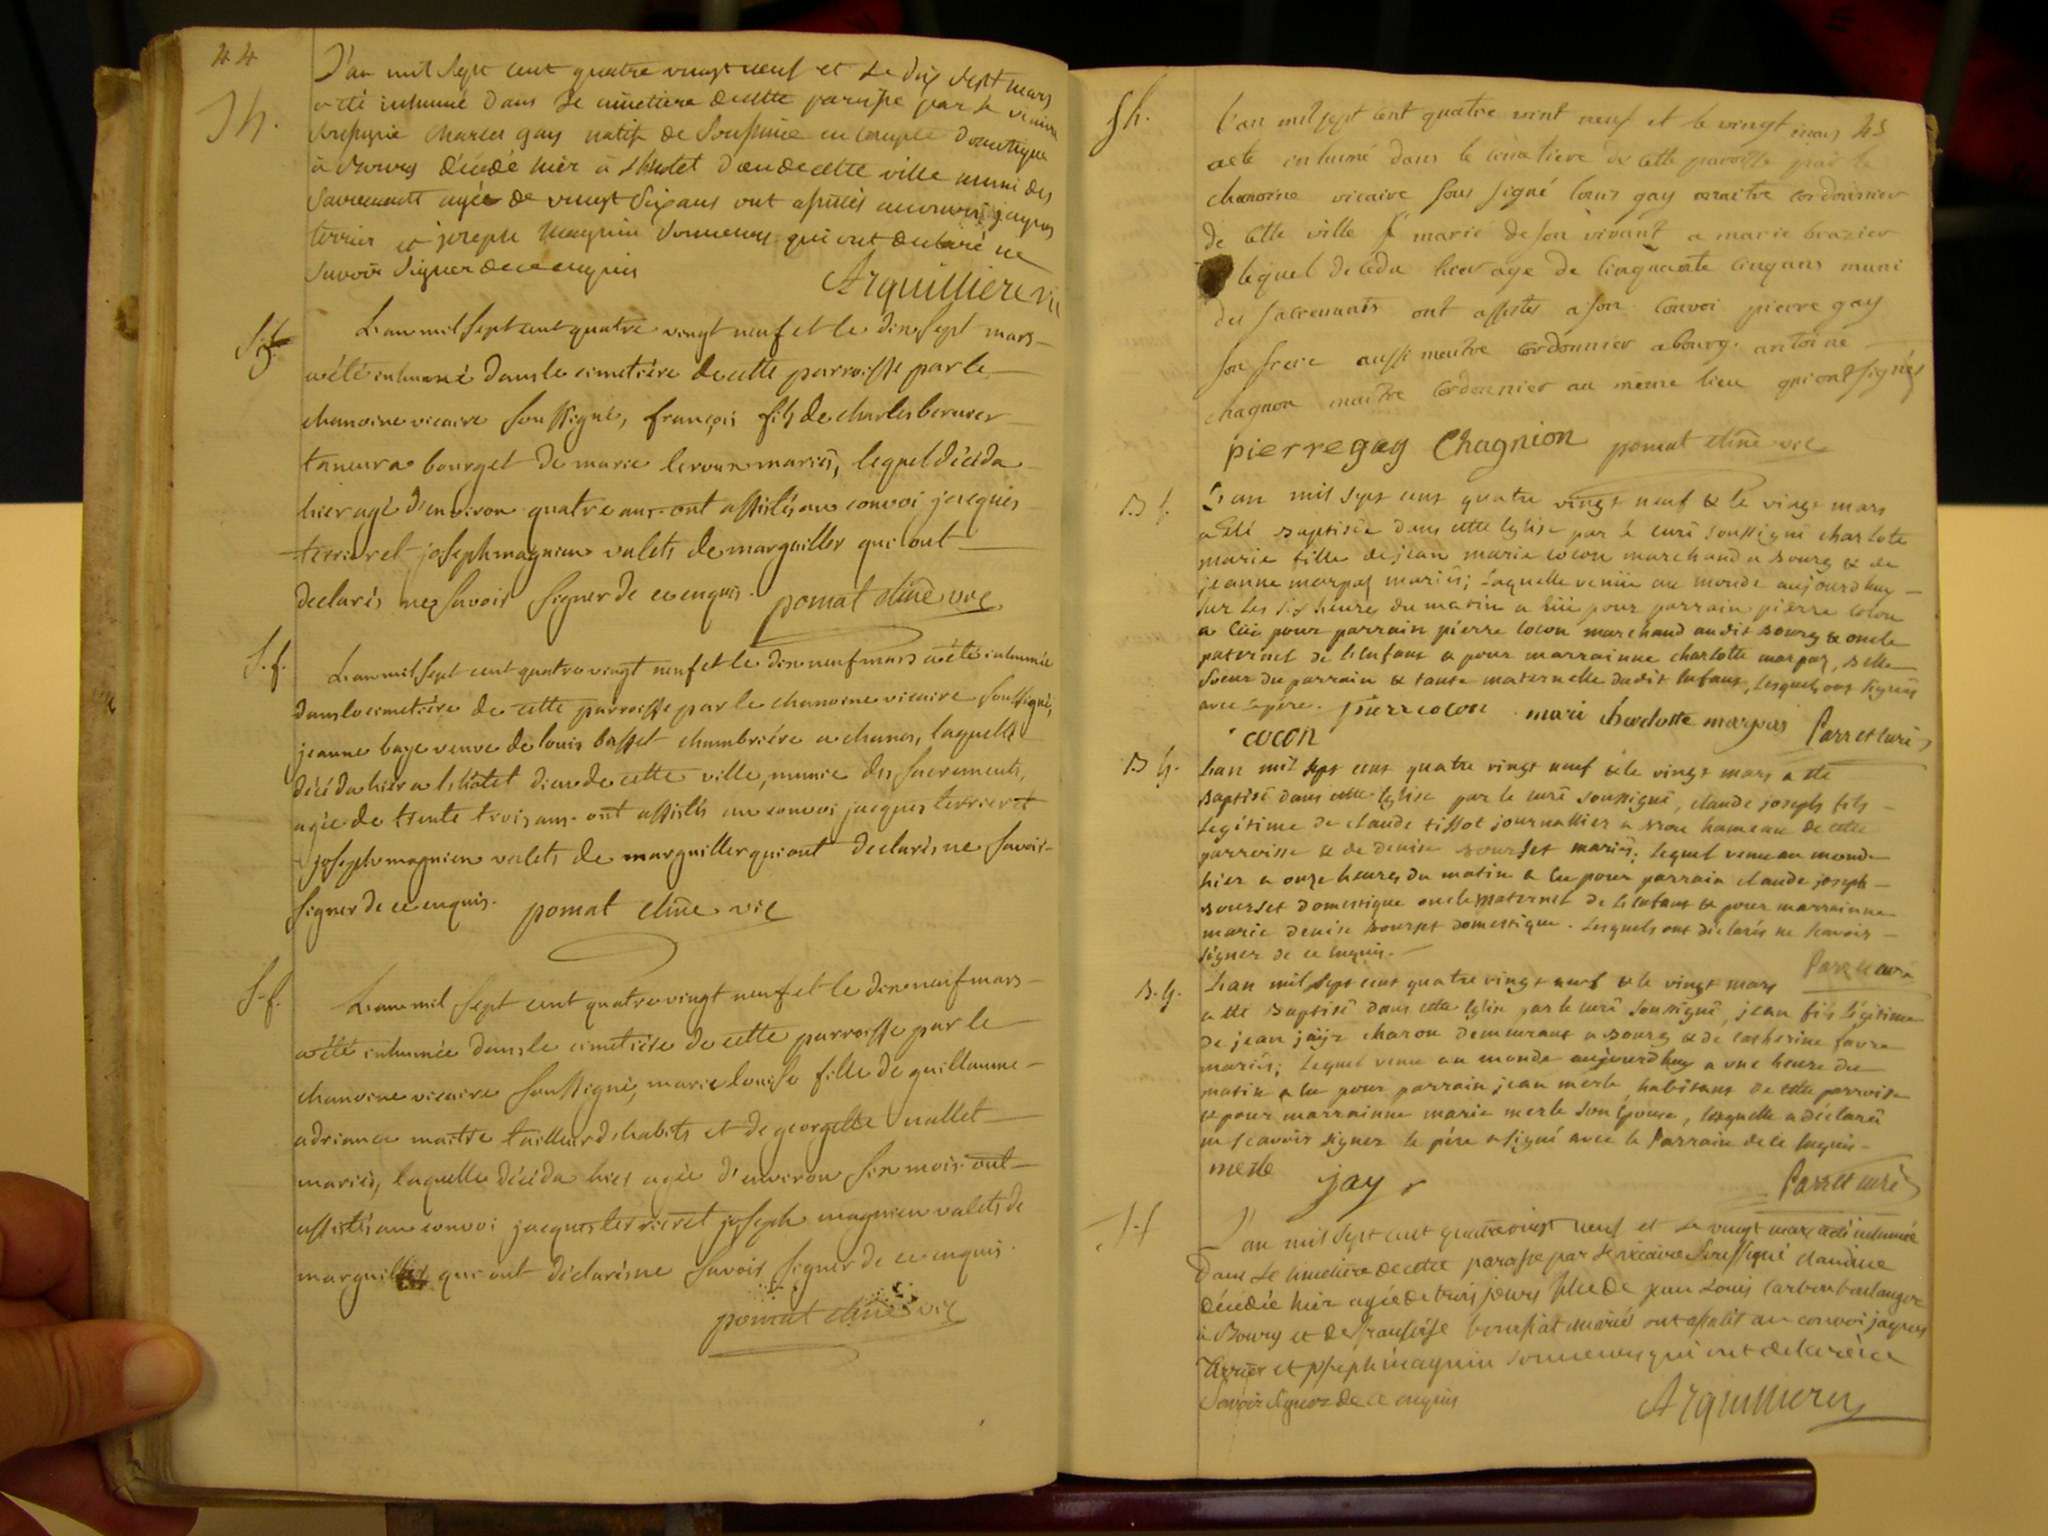 44
L'an mil sept cent quatre vingt neuf et le dix sept mars
S h. a été inhumé dans le cimetiere de cette paroisse par le vicaire
soussigné charles gay natif de en domestique
à décédé hier à l'hotel dieu de cette ville muni des
sacrements agée de vingt six ans ont assistés au convoi jaques
terrier et joseph magnin sonneurs qui ont declaré ne
savoir signer de ce enquis Arquilliere vic
L'an mil sept cent quatre vingt neuf et le dix sept mars
a été inhumé dans le cimetière de cette parroisse par le
chanoine vicaire soussigné, françois fils de charles bernier
taneur a bourg et de marie leroux mariés, lequel décéda
hier agé d'environ quatre ans. ont assistés au convoi jacques
terrier et joseph magnien valets de marguiller qui ont
declarés ne savoir signer de ce enquis. pomat chne vic
S. f. L'an mil sept cent quatre vingt neuf et le dix neuf mars a été inhumée
dans le cimetière de cette parroisse par le chanoine vicaire soussigné,
jeanne baye veuve de louis basset chambrière a chanos, laquelle
décéda hier a l'hôtel dieu de cette ville, munie des sacrements,
agée de trente trois ans. ont assistés au convoi jacques terrier et
joseph magnien valets de marguiller qui ont declarés ne savoir
signer de ce enquis. pomat chne vic
S. f. L'an mil sept cent quatre vingt neuf et le dix neuf mars
a été inhumée dans le cimetière de cette parroisse par le
chanoine vicaire soussigné, marie louise fille de guillaume
adriance maitre tailleur d'habits et de georgette vallet
mariés, laquelle décéda hier agée d'environ six mois. ont
assistés au convoi jacques terrier et joseph magnien valets de
marguiller qui ont déclarés ne savoir signer de ce enquis.
pomat chne vic
S h. L'an mil sept cent quatre vint neuf et le vingt mars 45
a ete inhumé dans le cimetiere de cette paroisse par le
chanoine vicaire sous signé louis gay maitre cordonnier
de cette ville marié de son vivant a marie brazier
lequel deceda hier age de cinquante cinq ans muni
des sacrements ont assistes a son convoi pierre gay
son frere aussi maitre cordonnier a bourg. antoine
chagnon maitre cordonnier au même lieu qui ont signés
pierre gay Chagnion pomat chne vic
B f. L'an mil sept cent quatre vingt neuf & le vingt mars
a été Baptisée dans cette Eglise par le curé soussigné charlote
marie fille de jean marie cocon marchand a Bourg & de
jeanne marpaz mariés; Laquelle venüe au monde aujourdhuy
sur les six heures du matin a eüe pour parrain pierre cocon
a eüe pour parrain pierre cocon marchand audit Bourg & oncle
paternel de l'enfant & pour marrainne charlotte marpaz, Belle
soeur du parrain & tante maternelle dudit Enfant, lesquels ont signés
avec le pére. pierre cocon marie charlotte marpas Parret curé
cocon
B h. L'an mil sept cent quatre vingt neuf & le vingt mars a été
Baptisé dans cette Eglise par le curé soussigné, claude joseph fils
Légitime de claude tissot journallier a Brou hameau de cette
parroisse & de denise Bourset mariés; lequel venu au monde
hier a onze heures du matin a eu pour parrain claude joseph
Bourset domestique oncle maternel de l'enfant & pour marrainne
marie denise Bourset domestique. Lesquels ont déclarés ne scavoir
signer de ce Enquis. Parret curé
B. h. L'an mil sept cent quatre vingt neuf & le vingt mars
a été Baptisé dans cette Eglise par le curé soussigné, jean fils légitime
de jean jaÿr charon demeurant a Bourg & de catherine favre
mariés; Lequel venu au monde aujourdhuy a une heure du
matin a eu pour parrain jean merle habitant de cette parroisse
& pour marrainne marie merle son Epouse, laquelle a déclaré
ne scavoir signer le pére a signé avec le Parrain de ce Enquis
merle jay r Parret curé
S. f L'an mil sept cent quatre vingt neuf et le vingt mars a été inhumée
Dans le cimetiere de cette paroisse par le vicaire soussigné claudine
décédée hier agée de trois jours fille de jean Louis carbon boulanger
à Bourg et de françoise mariés ont assisté au convoi jaques
terrier et joseph magnin sonneurs qui ont declaré ne
savoir signer de ce enquis Arquilliere